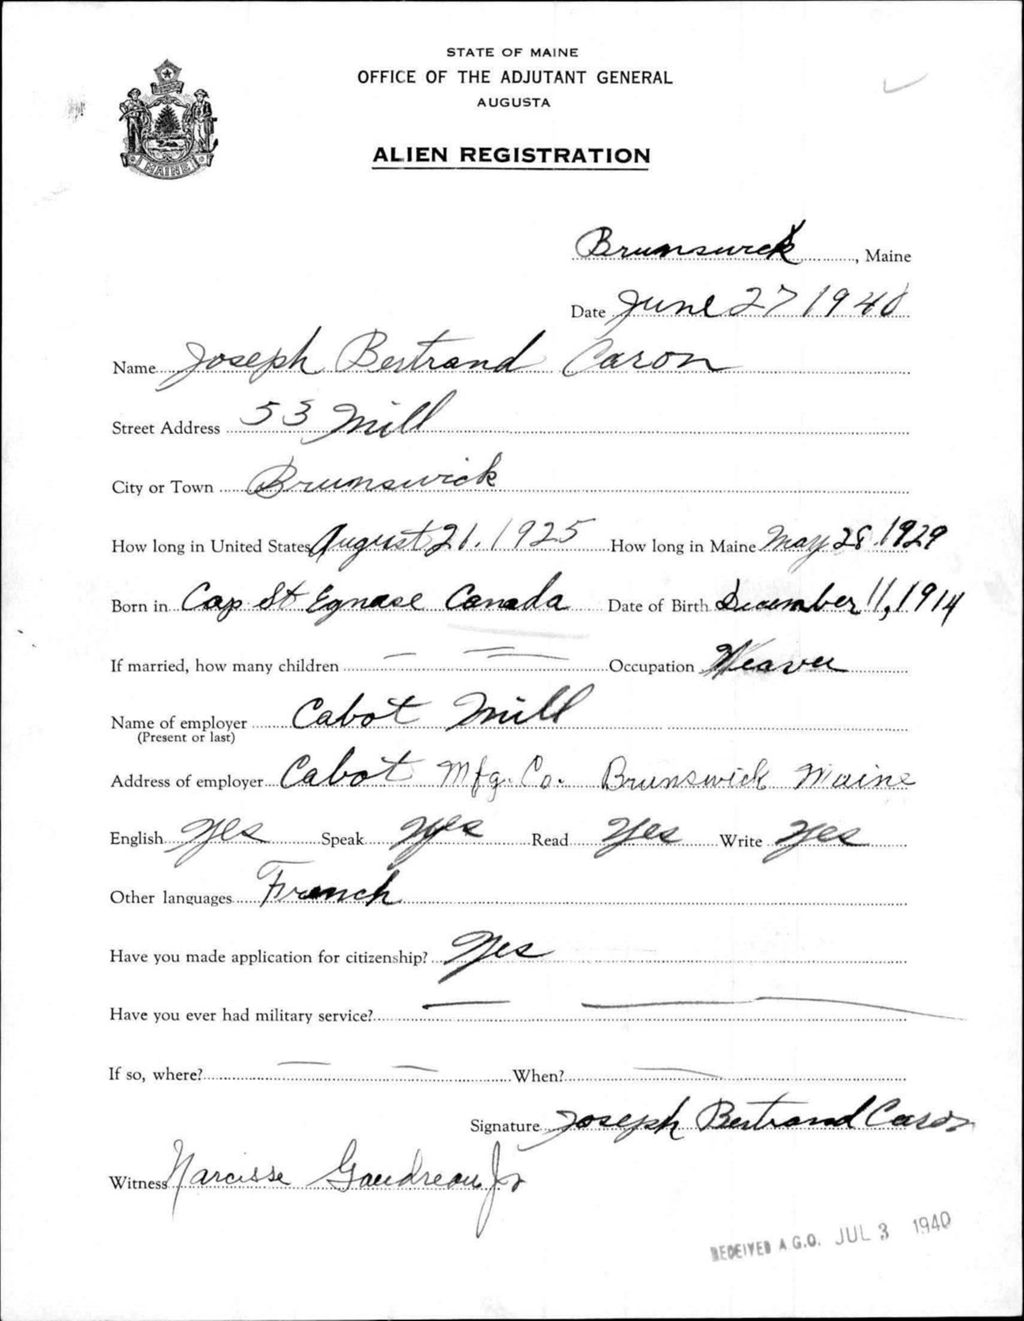 STATE OF MAINE
OFFICE OF THE ADJUTANT GENERAL
AUGUSTA
ALIEN REGISTRATION
MAINE
Brunswick, Maine
Date June 27 1940
Name Joseph Bertrand Caron
Street Address 53 Mill
City or Town Brunswick
How long in United States August 21. 1925 How long in Maine May 28. 1929
Born in Cap St Egnase Canada Date of Birth December 11, 1914
If married, how many children — — Occupation Weaver
Name of employer Cabot Mill
(Present or last)
Address of employer Cabot Mfg. Co. Brunswick Maine
English Yes Speak Yes Read Yes Write Yes
Other languages French
Have you made application for citizenship? Yes
Have you ever had military service? — —
If so, where? — — When? —
Signature Joseph Bertrand Caron
Witness Narcisse Gaudreau Jr
RECEIVED A.G.O. JUL 3 1940